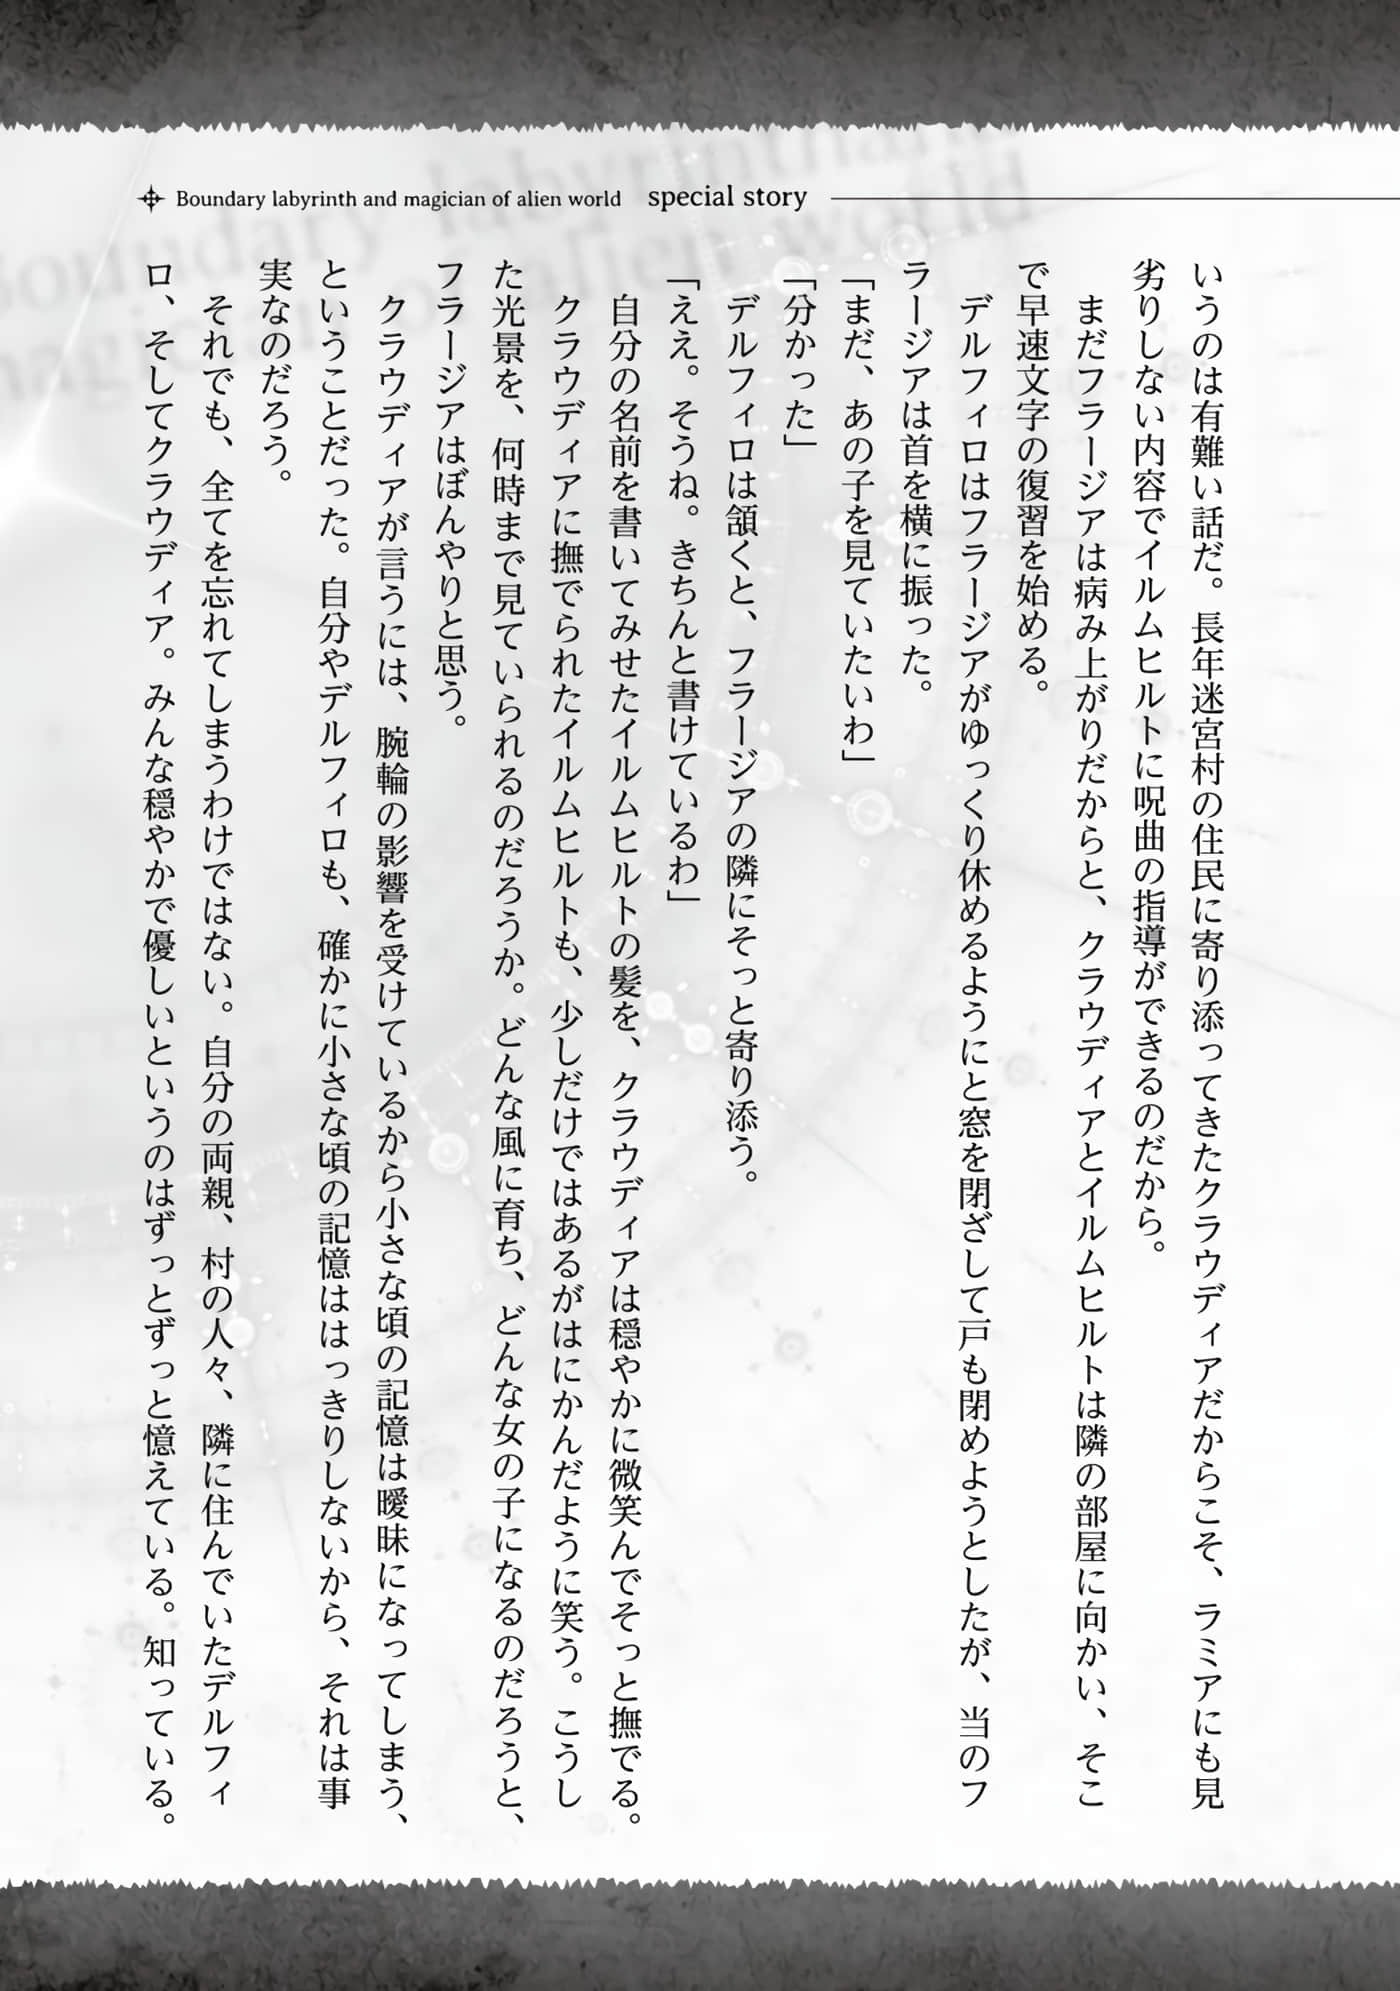 Boundary labyrinth and magician of alien world special story
いうのは有難い話だ。長年迷宮村の住民に寄り添ってきたクラウディアだからこそ、ラミアにも見
劣りしない内容でイルムヒルトに呪曲の指導ができるのだから。
　まだフラージアは病み上がりだからと、クラウディアとイルムヒルトは隣の部屋に向かい、そこ
で早速文字の復習を始める。
　デルフィロはフラージアがゆっくり休めるようにと窓を閉ざして戸も閉めようとしたが、当のフ
ラージアは首を横に振った。
「まだ、あの子を見ていたいわ」
「分かった」
　デルフィロは頷くと、フラージアの隣にそっと寄り添う。
「ええ。そうね。きちんと書けているわ」
　自分の名前を書いてみせたイルムヒルトの髪を、クラウディアは穏やかに微笑んでそっと撫でる。
　クラウディアに撫でられたイルムヒルトも、少しだけではあるがはにかんだように笑う。こうし
た光景を、何時まで見ていられるのだろうか。どんな風に育ち、どんな女の子になるのだろうと、
フラージアはぼんやりと思う。
　クラウディアが言うには、腕輪の影響を受けているから小さな頃の記憶は曖昧になってしまう、
ということだった。自分やデルフィロも、確かに小さな頃の記憶ははっきりしないから、それは事
実なのだろう。
　それでも、全てを忘れてしまうわけではない。自分の両親、村の人々、隣に住んでいたデルフィ
ロ、そしてクラウディア。みんな穏やかで優しいというのはずっとずっと憶えている。知っている。
Boundary labyrinth and
magician of alien world